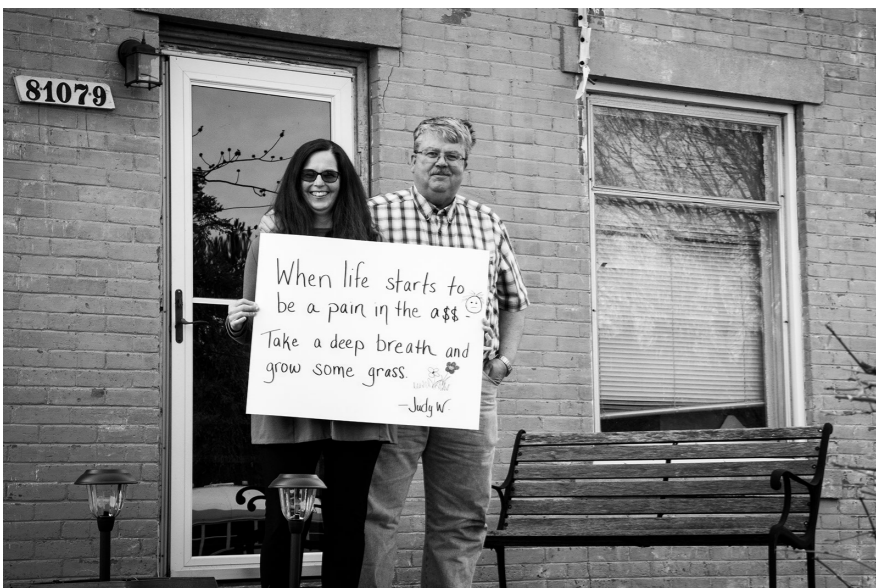 81079
When life starts to
be a pain in the a$$
Take a deep breath and
grow some grass.
-Judy W.